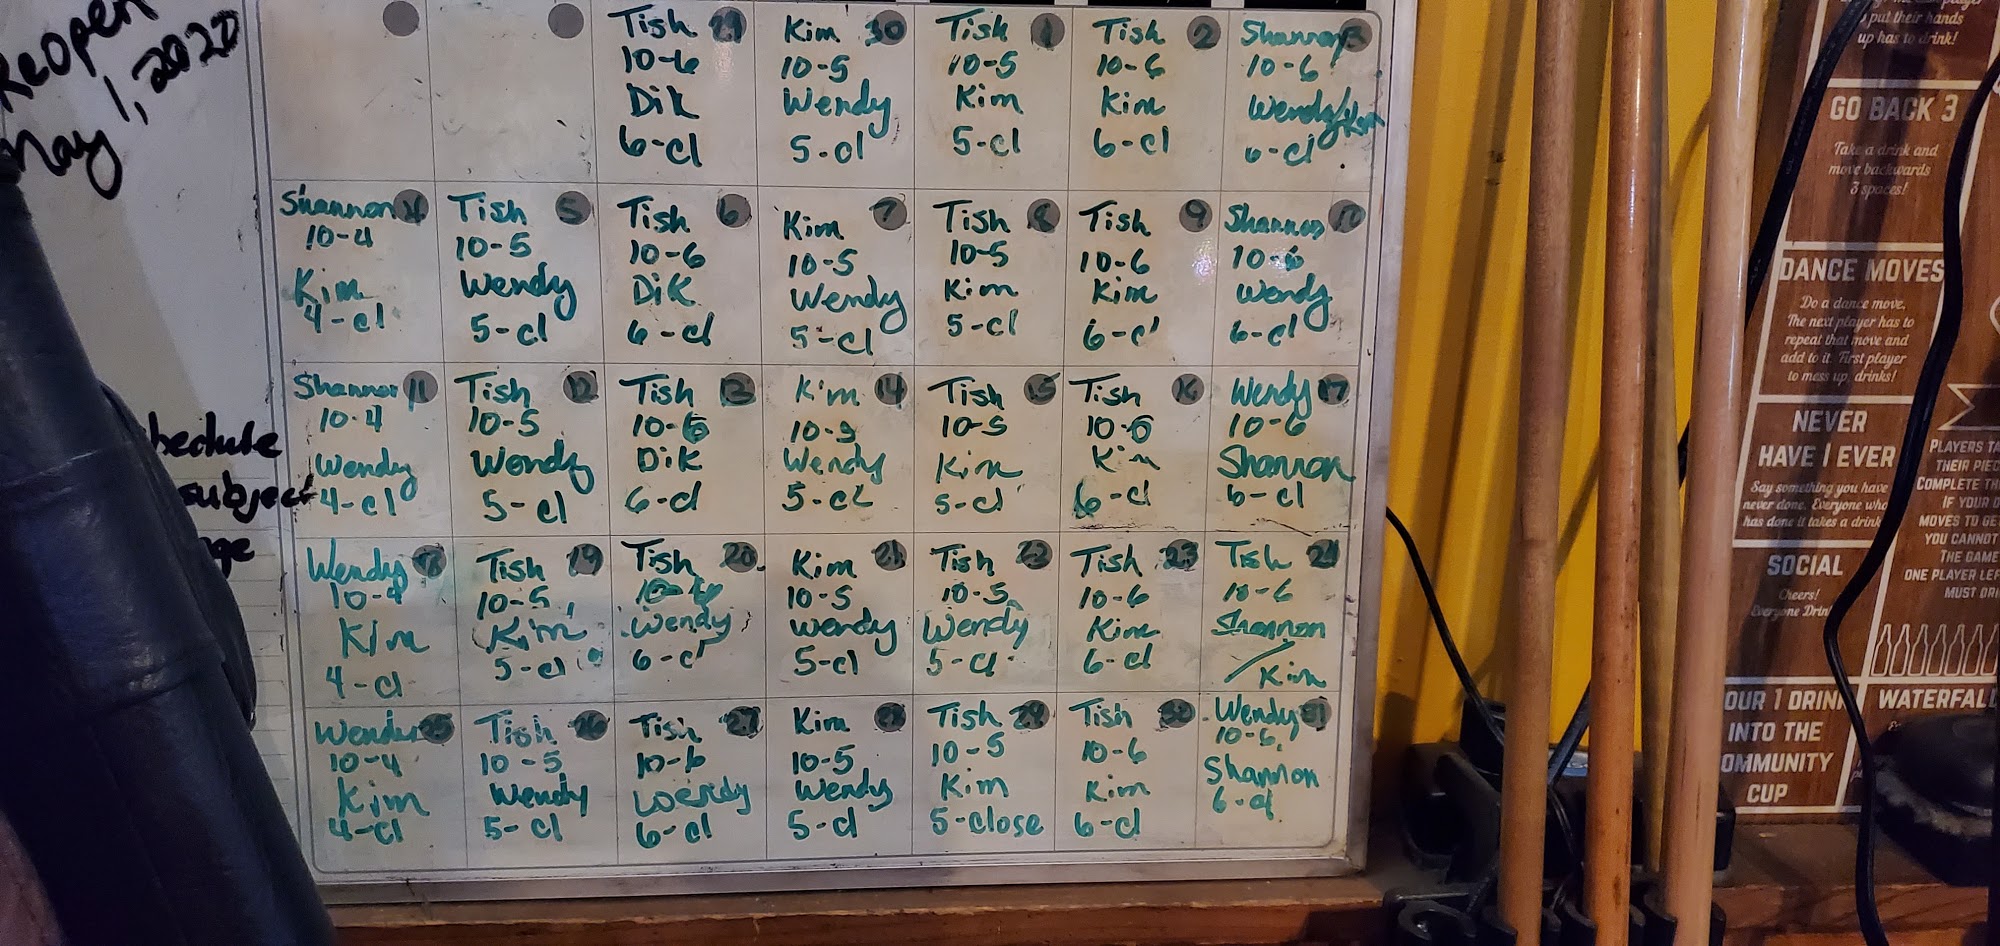 ReOpen
May 1, 2020
Tish 29
10-6
Dik
6-cl
Kim 30
10-5
Wendy
5-cl
Tish 1
10-5
Kim
5-cl
Tish 2
10-6
Kim
6-cl
Shannon 3
10-6
Wendy/Kim
6-cl
Shannon 4
10-4
Kim
4-cl
Tish 5
10-5
Wendy
5-cl
Tish 6
10-6
Dik
6-cl
Kim 7
10-5
Wendy
5-cl
Tish 8
10-5
Kim
5-cl
Tish 9
10-6
Kim
6-cl
Shannon 10
10-6
Wendy
6-cl
Shannon 11
10-4
Wendy
4-cl
Tish 12
10-5
Wendy
5-cl
Tish 13
10-6
Dik
6-cl
Kim 14
10-5
Wendy
5-cl
Tish 15
10-5
Kim
5-cl
Tish 16
10-6
Kim
6-cl
Wendy 17
10-6
Shannon
6-cl
Wendy 18
10-4
Kim
4-cl
Tish 19
10-5
Kim
5-cl
Tish 20
10-6
Wendy
6-cl
Kim 21
10-5
Wendy
5-cl
Tish 22
10-5
Wendy
5-cl
Tish 23
10-6
Kim
6-cl
Tish 24
10-6
Shannon
/ Kim
Wendy 25
10-4
Kim
4-cl
Tish 26
10-5
Wendy
5-cl
Tish 27
10-6
Wendy
6-cl
Kim 28
10-5
Wendy
5-cl
Tish 29
10-5
Kim
5-close
Tish 30
10-6
Kim
6-cl
Wendy 31
10-6
Shannon
6-cl
hedule
subject
nge
put their hands
up has to drink!
GO BACK 3
Take a drink and
move backwards
3 spaces!
DANCE MOVES
Do a dance move.
The next player has to
repeat that move and
add to it. First player
to mess up, drinks!
NEVER
HAVE I EVER
Say something you have
never done. Everyone who
has done it takes a drink
SOCIAL
Cheers!
Everyone Drin
OUR 1 DRINK
INTO THE
OMMUNITY
CUP
PLAYERS TA
THEIR PIEC
COMPLETE TH
IF YOUR D
MOVES TO GE
YOU CANNOT
THE GAME
ONE PLAYER LEF
MUST DRI
WATERFALL